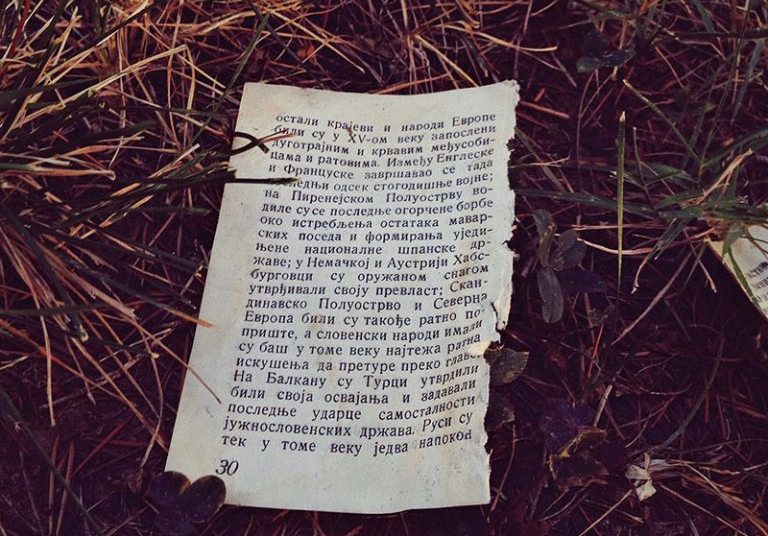 остали крајеви и народи Европе
били су у XV-ом веку запослени
дуготрајним и крвавим међусоби-
цама и ратовима. Између Енглеске
и Француске завршавао се тада
последњи одсек стогодишње војне;
на Пиренејском Полуострву во-
диле су се последње огорчене борбе
око истребљења остатака мавар-
ских поседа и формирања уједи-
њене националне шпанске др-
жаве; у Немачкој и Аустрији Хабс-
бурговци су оружаном снагом
утврђивали своју превласт; Скан-
динавско Полуострво и Северна
Европа били су такође ратно по-
приште, а словенски народи имали
су баш у томе веку најтежа ратна
искушења да претуре преко главе.
На Балкану су Турци утврдили
били своја освајања и задавали
последње ударце самосталности
јужнословенских држава. Руси су
тек у томе веку једва напокон
30